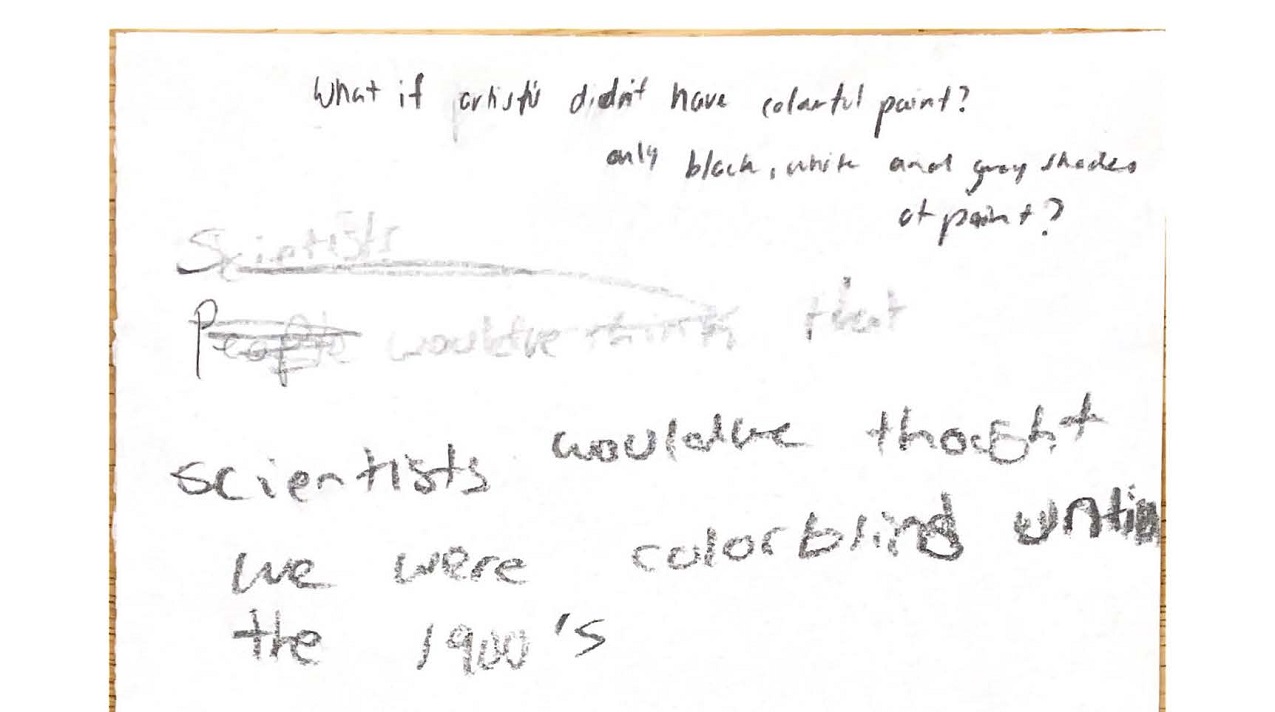 What if artists didn't have colorful paint?
only black, white and gray shades
of paint?
Scientists
People would've think that
scientists would've thought
we were colorblind until
the 1900's